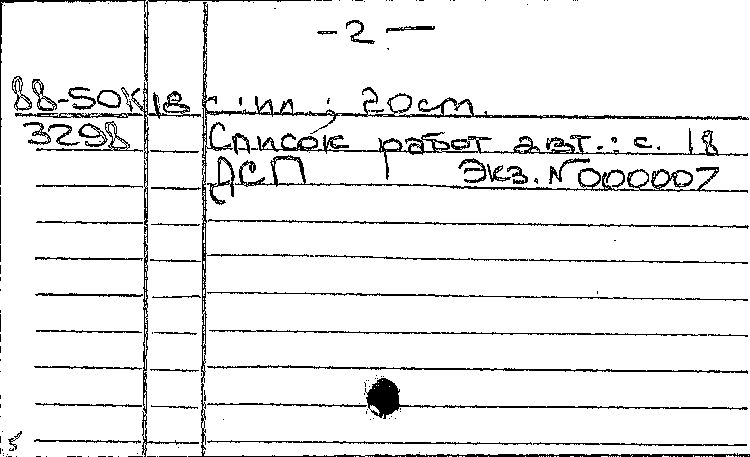 -2-
88-50К 18 с : ил ; 20 cm.
3298 Список работ авт.: с. 18
ДСП Экз. N000007
5